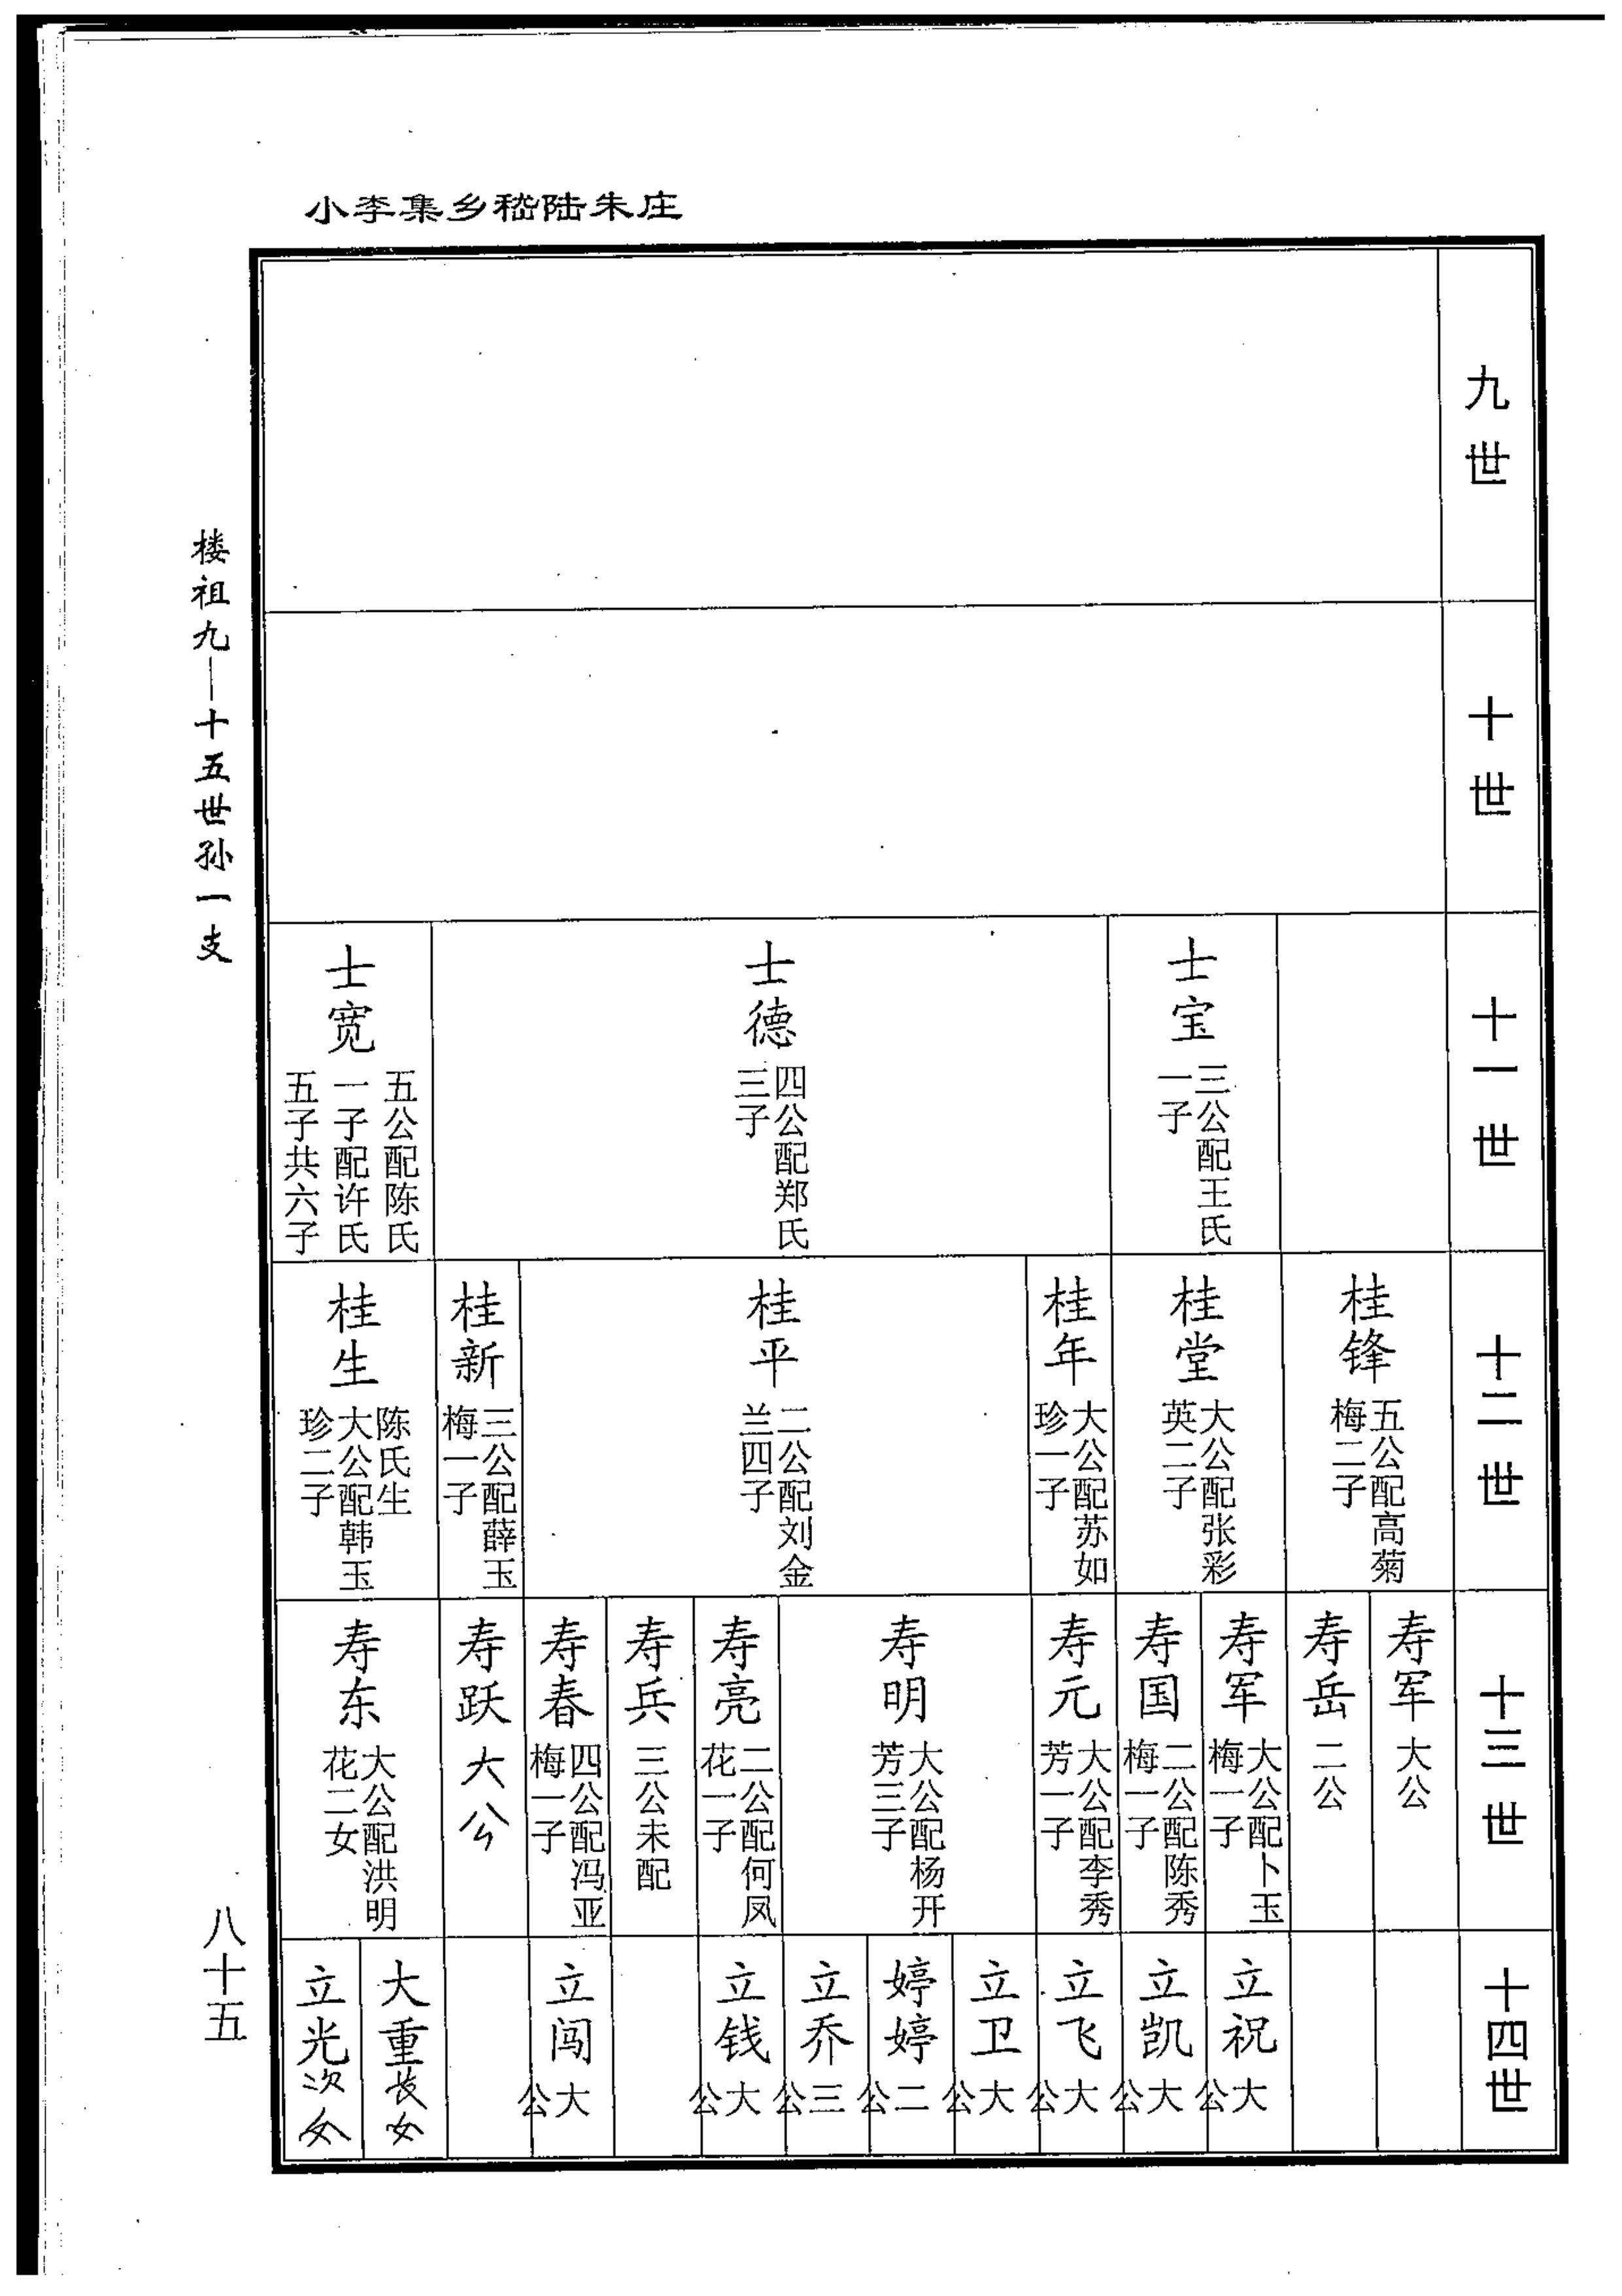 小李集乡嵇陆朱庄
九世
十世
十一世
士宝
三公配王氏
一子
士德
四公配郑氏
三子
士宽
五公配陈氏
一子配许氏
五子共六子
十二世
桂锋
五公配高菊
梅二子
桂堂
大公配张彩
英二子
桂年
大公配苏如
珍一子
桂平
二公配刘金
兰四子
桂新
三公配薛玉
梅一子
桂生
陈氏生
大公配韩玉
珍二子
十三世
寿军
大公
寿岳
二公
寿军
大公配卜玉
梅一子
寿国
二公配陈秀
梅一子
寿元
大公配李秀
芳一子
寿明
大公配杨开
芳三子
寿亮
二公配何凤
花一子
寿兵
三公未配
寿春
四公配冯亚
梅一子
寿跃
大公
寿东
大公配洪明
花二女
十四世
立祝
大公
立凯
大公
立飞
大公
立卫
大公
婷婷
二公
立乔
三公
立钱
大公
立闯
大公
大重长女
立光次女
楼祖九—十五世孙一支
八十五